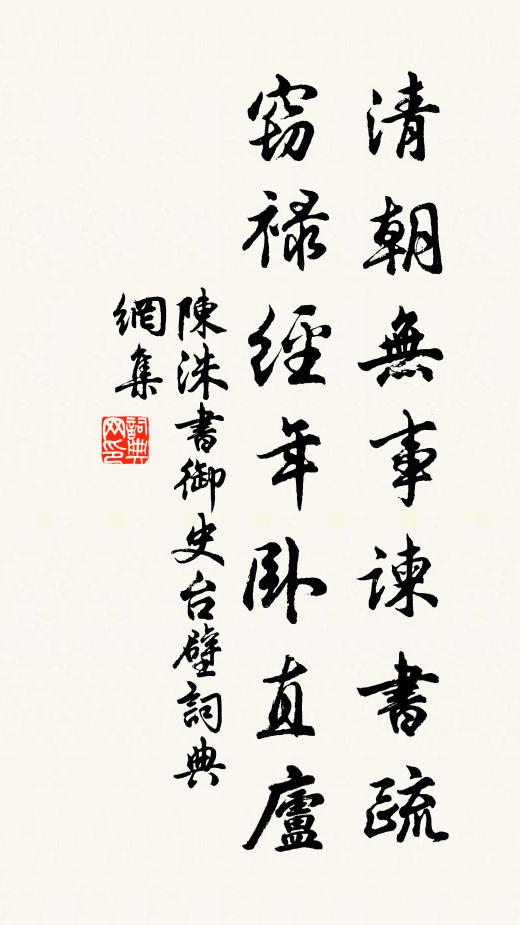 清朝無事諫書疏
窃祿經年卧直廬
陳洙書御史台壁詞典
網集
詞典網印